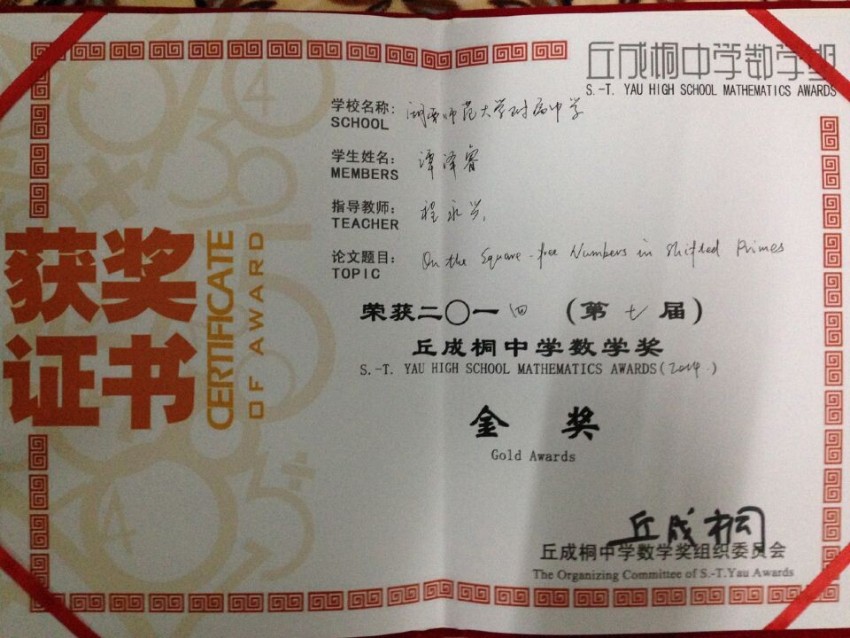 丘成桐中学数学奖
S.-T. YAU HIGH SCHOOL MATHEMATICS AWARDS
学校名称： 湖南师范大学附属中学
SCHOOL
学生姓名： 谭泽睿
MEMBERS
指导教师： 程永兴
TEACHER
论文题目： On the Square-free Numbers in Shifted Primes
TOPIC
获奖
证书
CERTIFICATE
OF AWARD
荣获二〇一四（第七届）
丘成桐中学数学奖
S.-T. YAU HIGH SCHOOL MATHEMATICS AWARDS(2014.)
金奖
Gold Awards
丘成桐
丘成桐中学数学奖组织委员会
The Organizing Committee of S.-T.Yau Awards